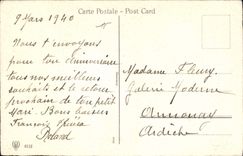 Carte Postale - Post Card
9 Mars 1940
Nous t'envoyons
pour ton anniversaire
tous nos meilleurs
souhaits et le retour
prochain de ton petit
Mari. Bons baisers
François
Madame Fleury
Galerie Moderne
Annonay
Ardèche